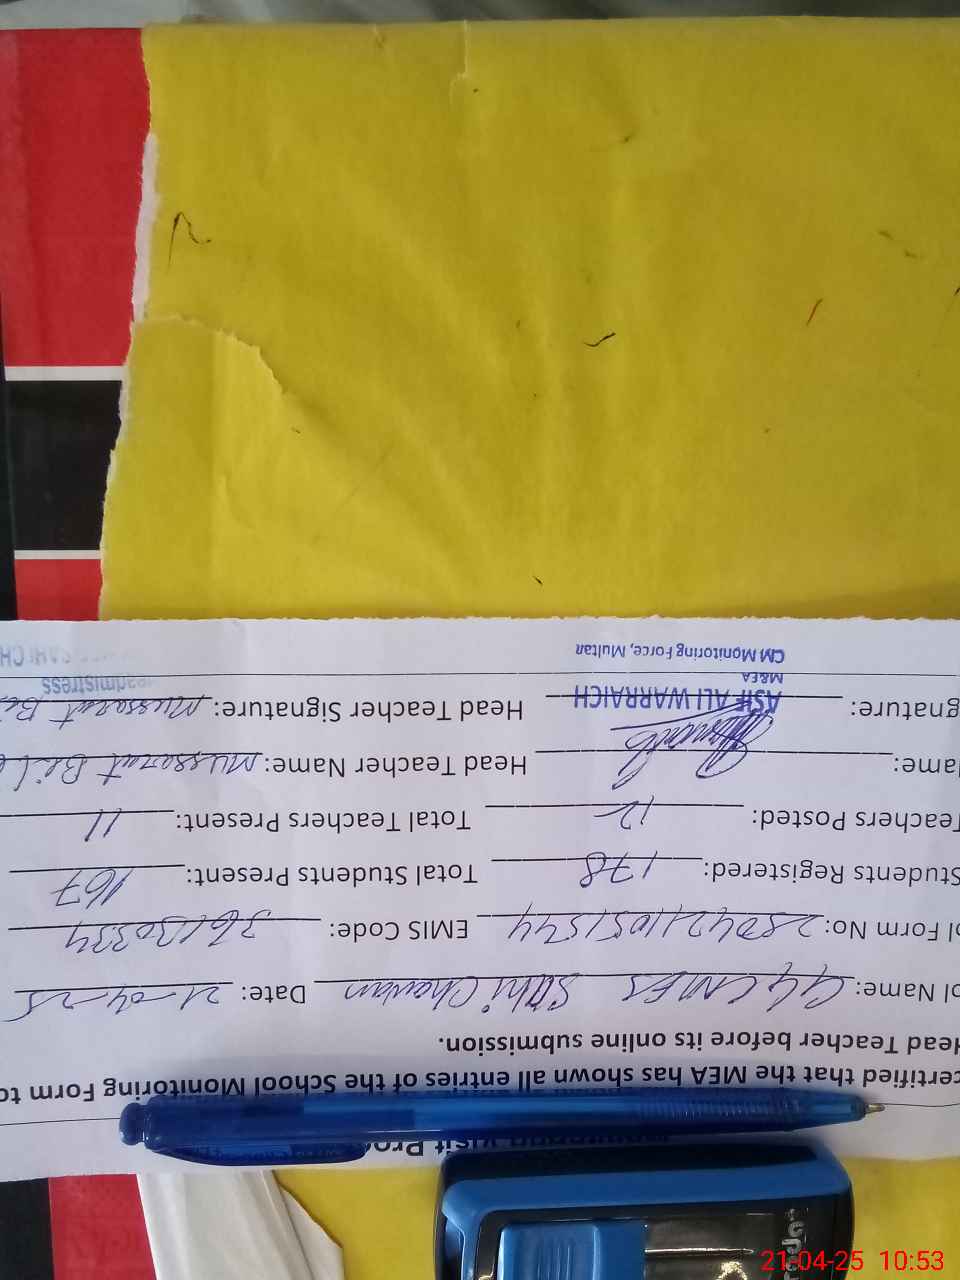 visit Pro
certified that the MEA has shown all entries of the School Monitoring Form to
Head Teacher before its online submission.
ol Name: Sahi Chawan Date: 21-04-25
ol Form No: EMIS Code: 36130334
Students Registered: 178 Total Students Present: 167
Teachers Posted: 12 Total Teachers Present: 11
ame: Head Teacher Name: Mussarat Bi
gnature: ASIF ALI WARRAICH Head Teacher Signature: Mussarat B
M&EA eadmistress
CM Monitoring Force, Multan SAHI CH
21-04-25 10:53